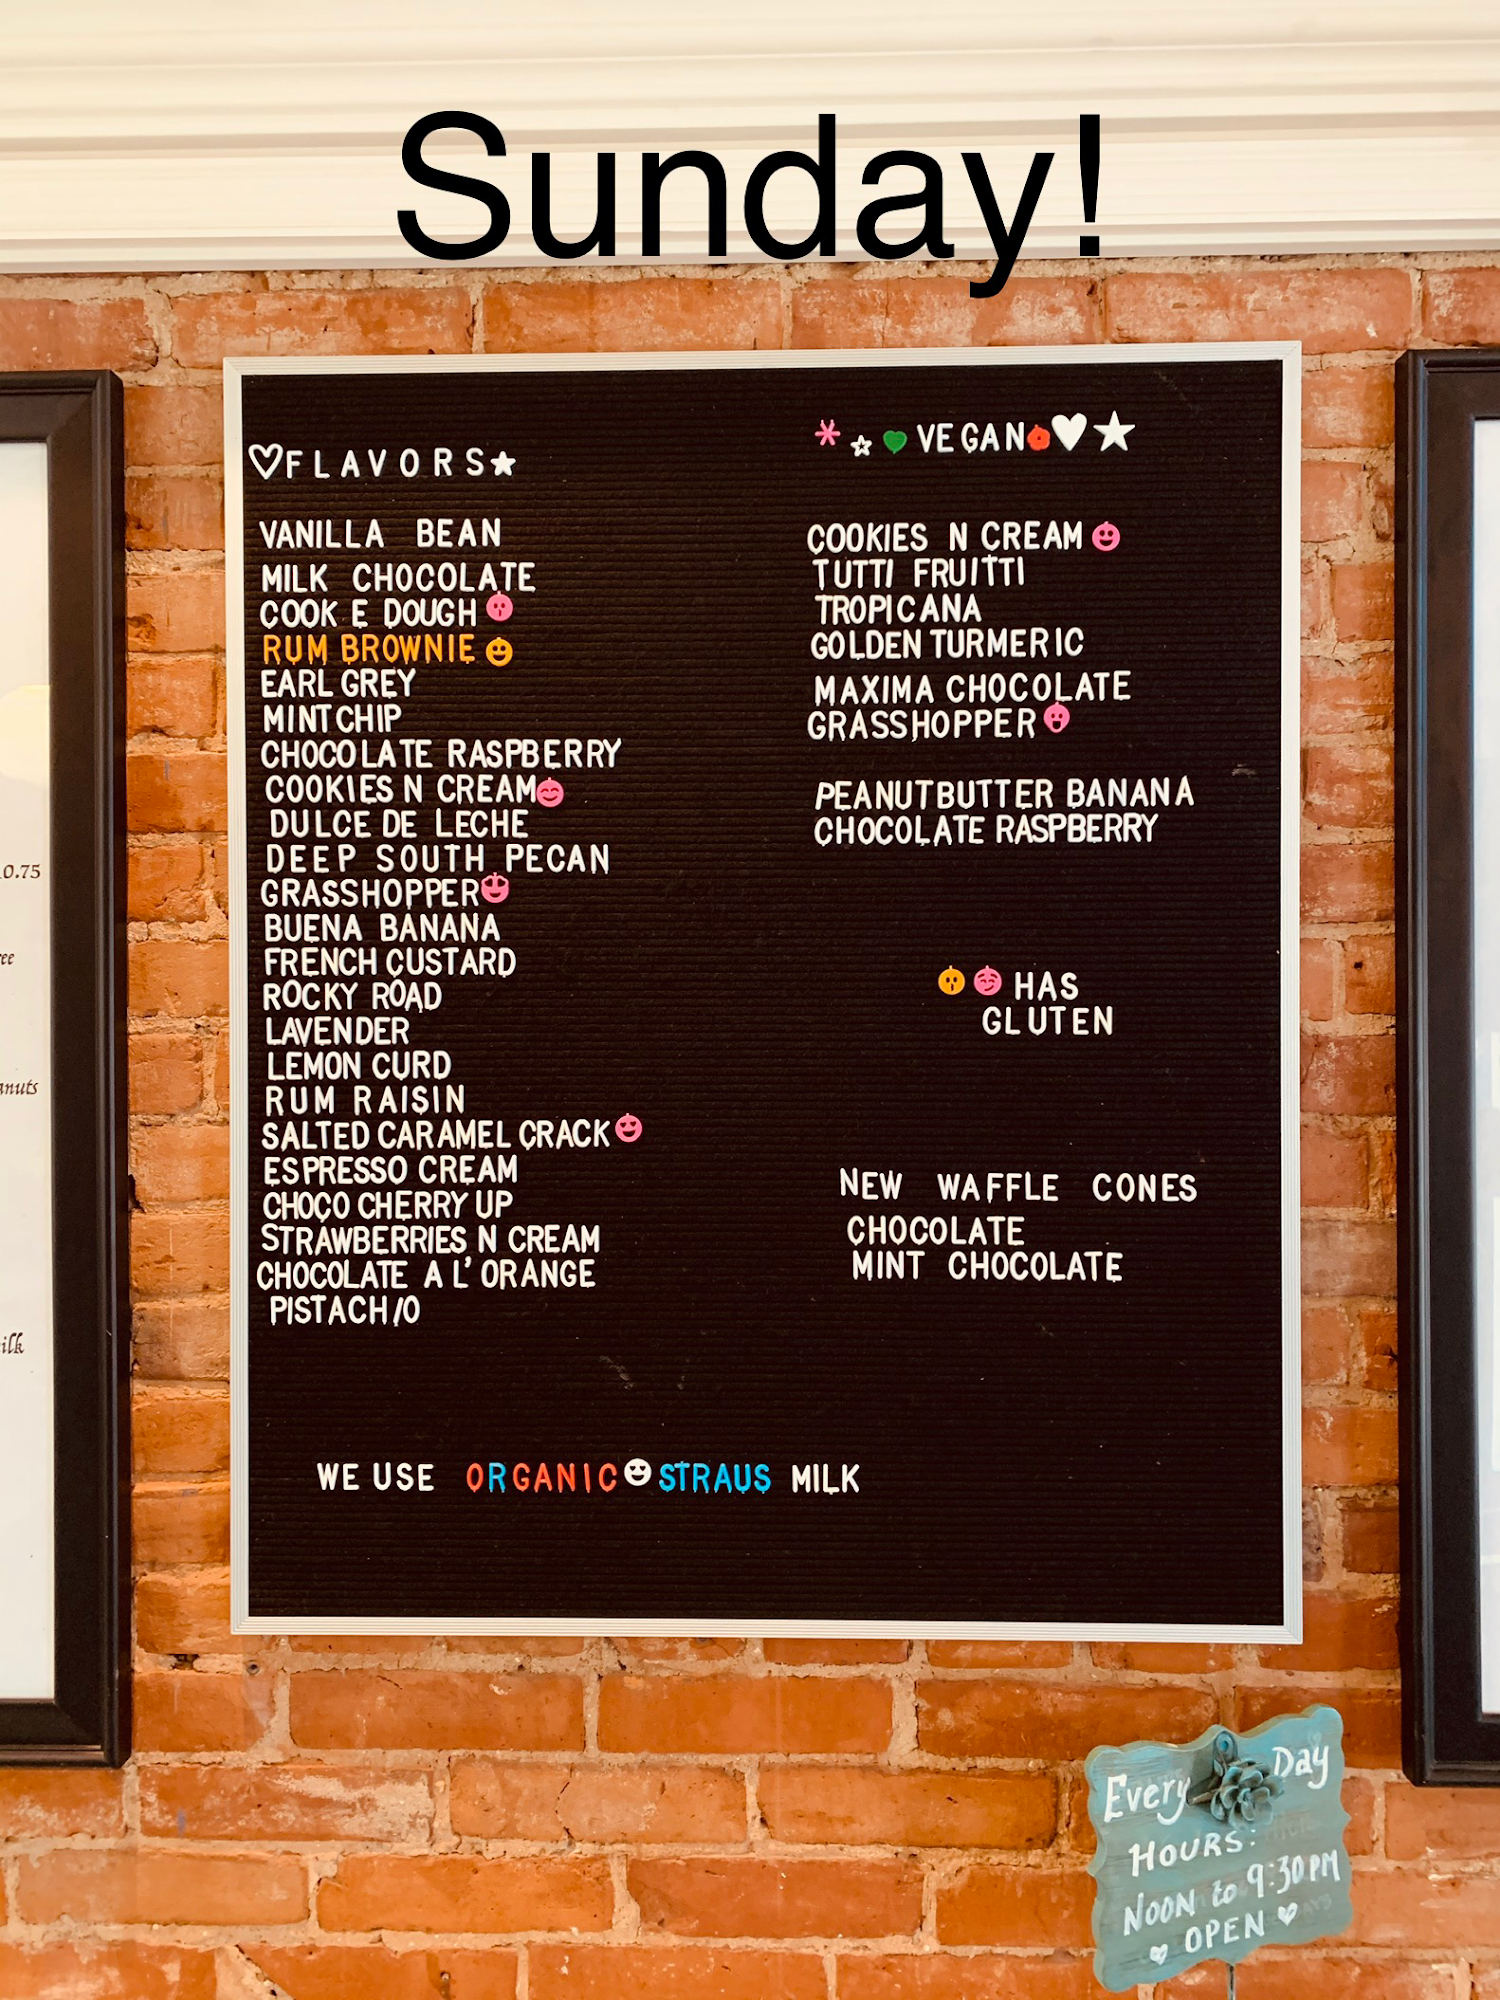 Sunday!
FLAVORS
VANILLA BEAN
MILK CHOCOLATE
COOK E DOUGH
RUM BROWNIE
EARL GREY
MINT CHIP
CHOCOLATE RASPBERRY
COOKIES N CREAM
DULCE DE LECHE
DEEP SOUTH PECAN
GRASSHOPPER
BUENA BANANA
FRENCH CUSTARD
ROCKY ROAD
LAVENDER
LEMON CURD
RUM RAISIN
SALTED CARAMEL CRACK
ESPRESSO CREAM
CHOCO CHERRY UP
STRAWBERRIES N CREAM
CHOCOLATE A L' ORANGE
PISTACH/O
VEGAN
COOKIES N CREAM
TUTTI FRUITTI
TROPICANA
GOLDEN TURMERIC
MAXIMA CHOCOLATE
GRASSHOPPER
PEANUTBUTTER BANANA
CHOCOLATE RASPBERRY
HAS
GLUTEN
NEW WAFFLE CONES
CHOCOLATE
MINT CHOCOLATE
WE USE ORGANIC STRAUS MILK
0.75
Every Day
HOURS:
NOON to 9:30 PM
OPEN